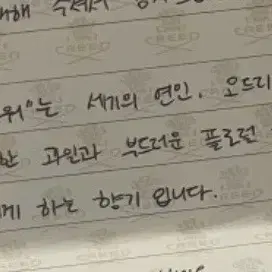 해 주셔서
워"는 세기의 연인, 오드리
한 과일과 부드러운 플로럴
게 하는 향기 입니다.
CREED